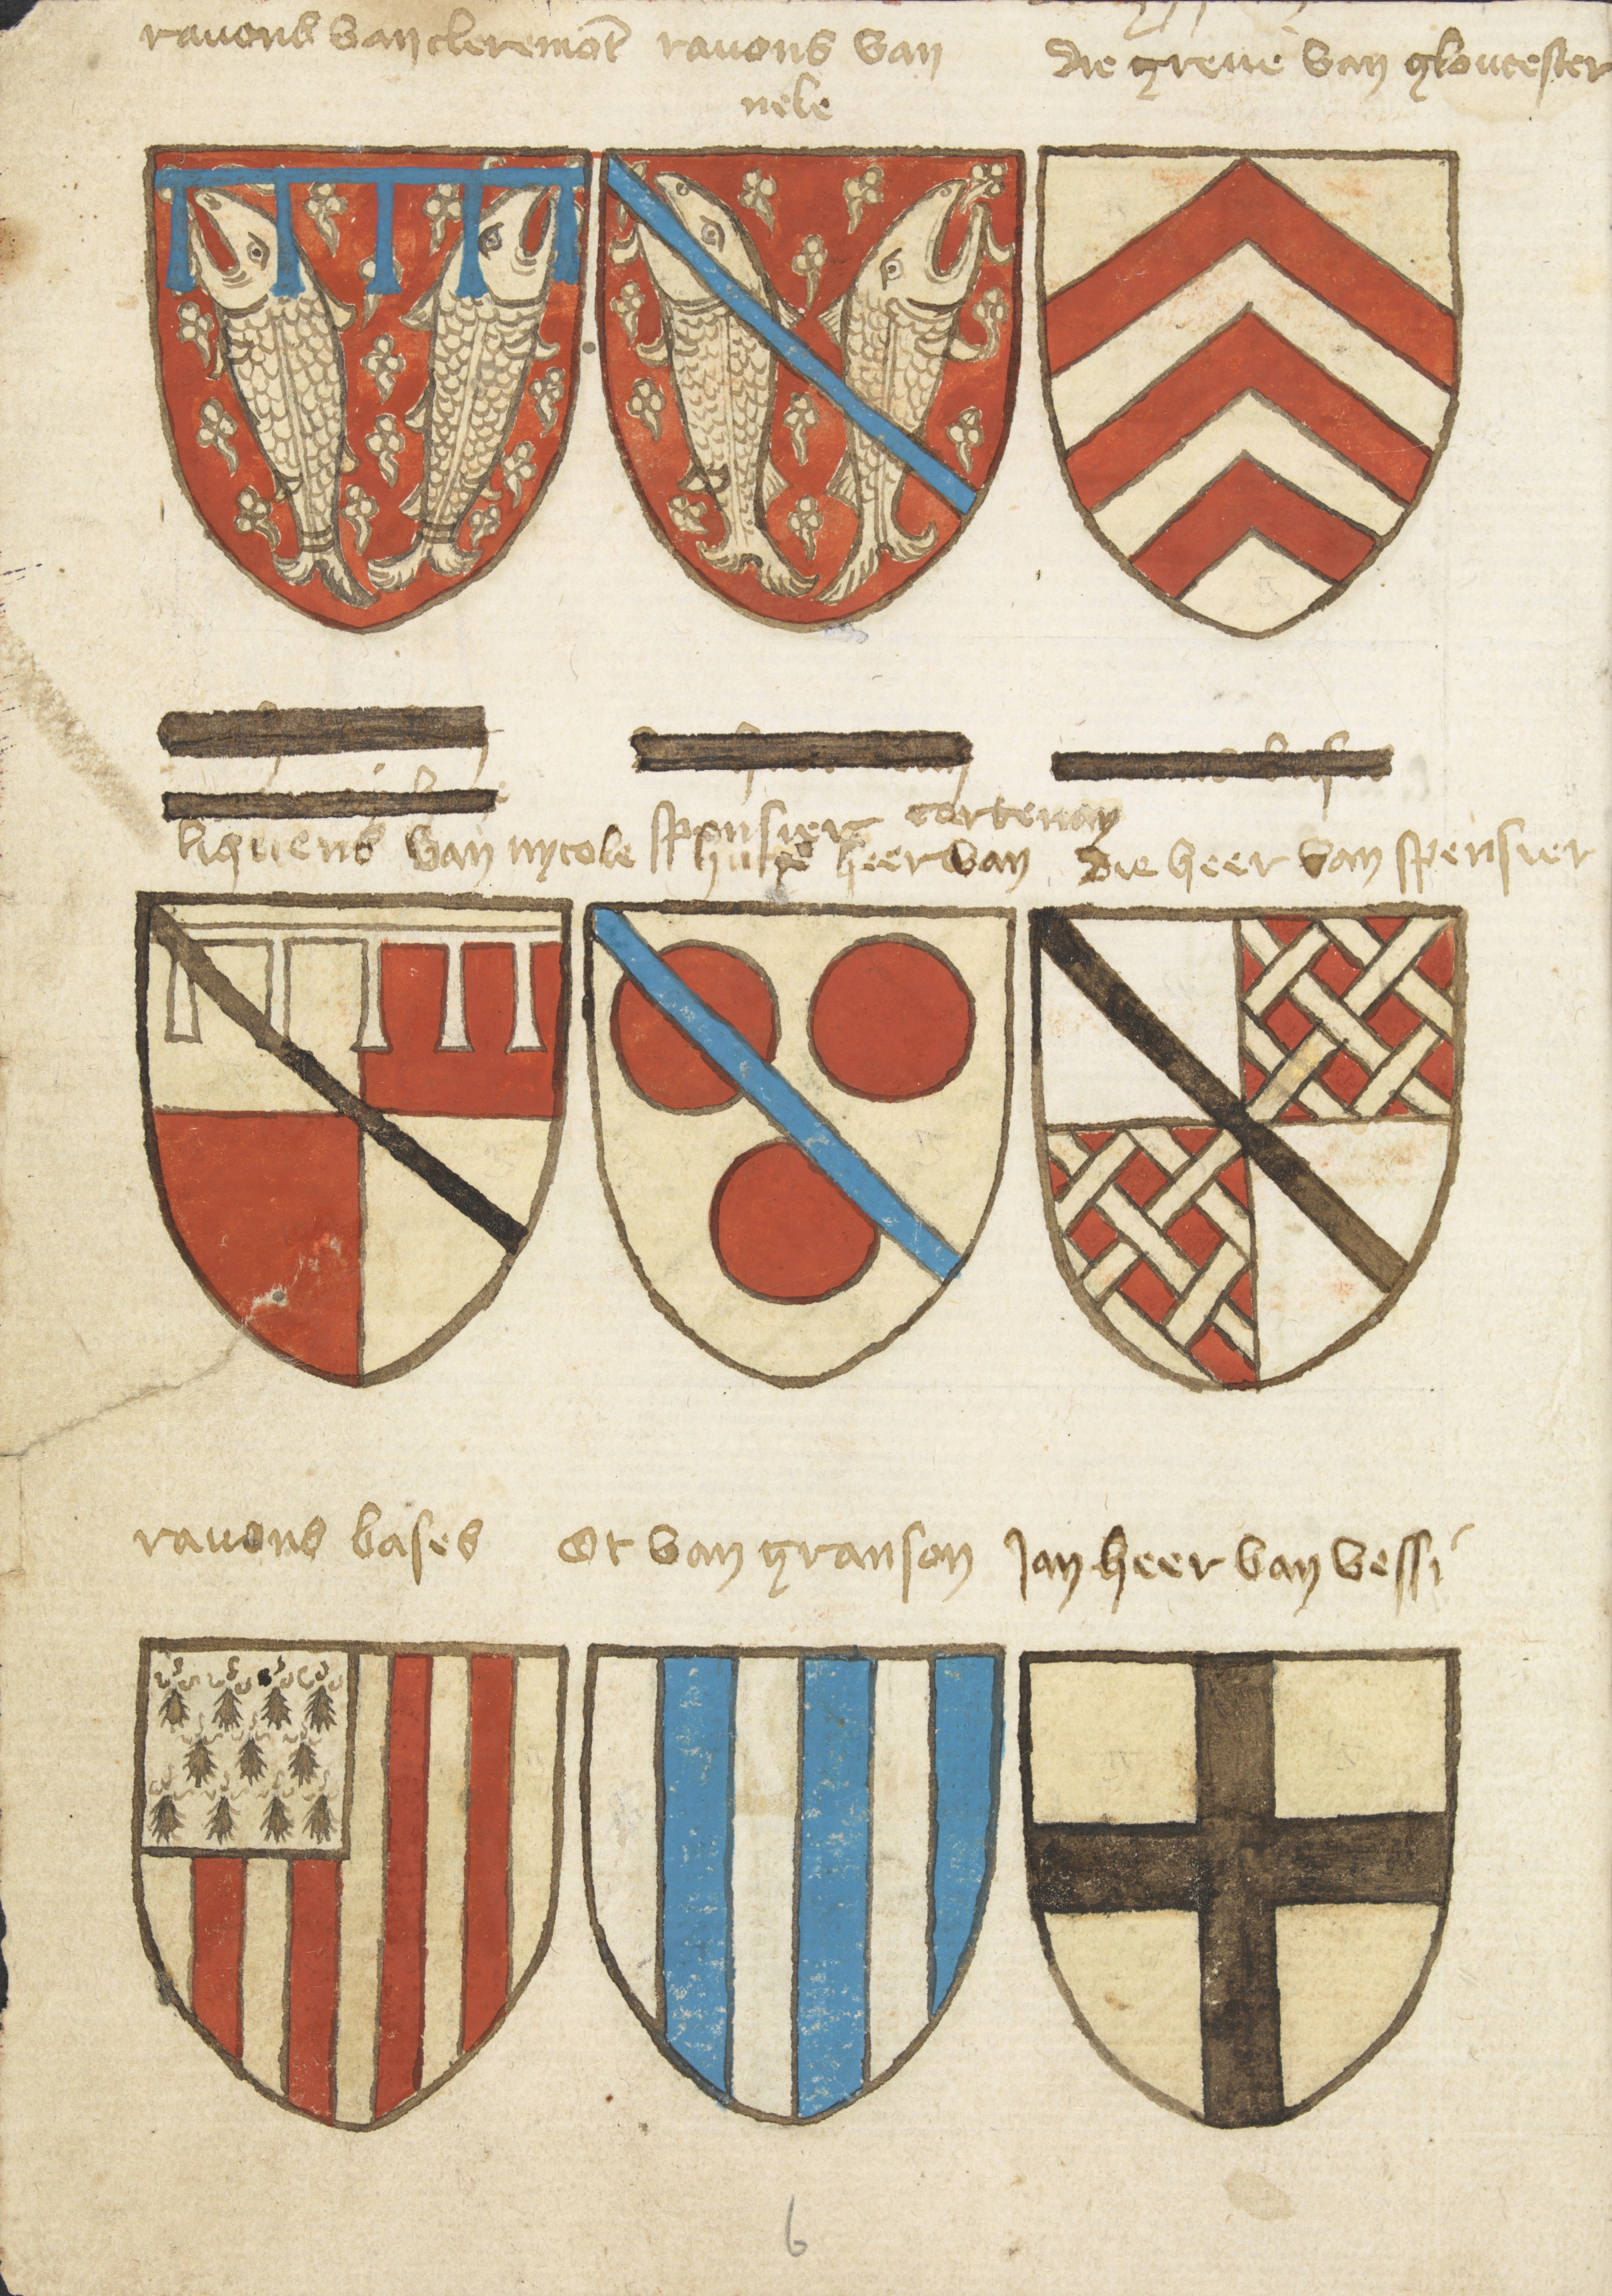 rauons van cleremōt
rauons van
nele
die greue van gloucester
liquens van nycole
spensier cortenay
huge heer van
die heer van spensier
rauons bases
Ot van granson
Jan heer van vessi
6